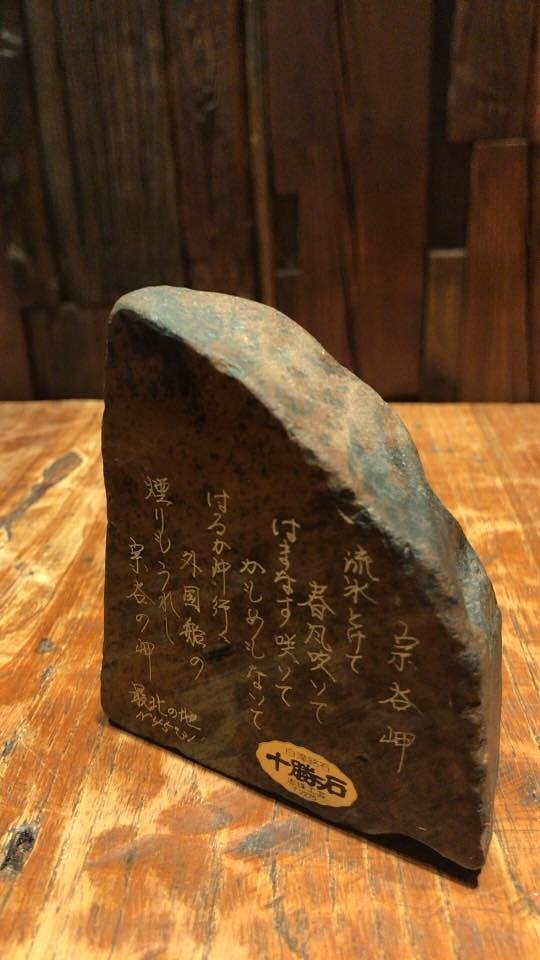 宗谷岬
流氷とけて
春風吹いて
はまなす咲いて
かもめもないて
はるか沖行く
外国船の
煙りもうれし
宗谷の岬
最北の地
十勝石